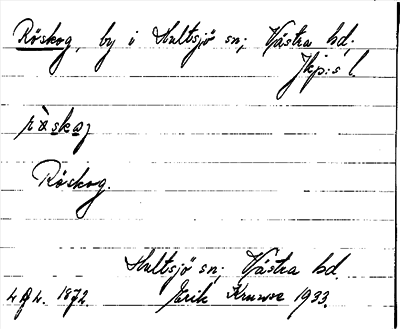 Röskog, by i Hultsjö sn; Västra hd.
Jkp:s l.
Röskog.
Hultsjö sn; Västra hd.
1872. Erik Kruuse 1933.